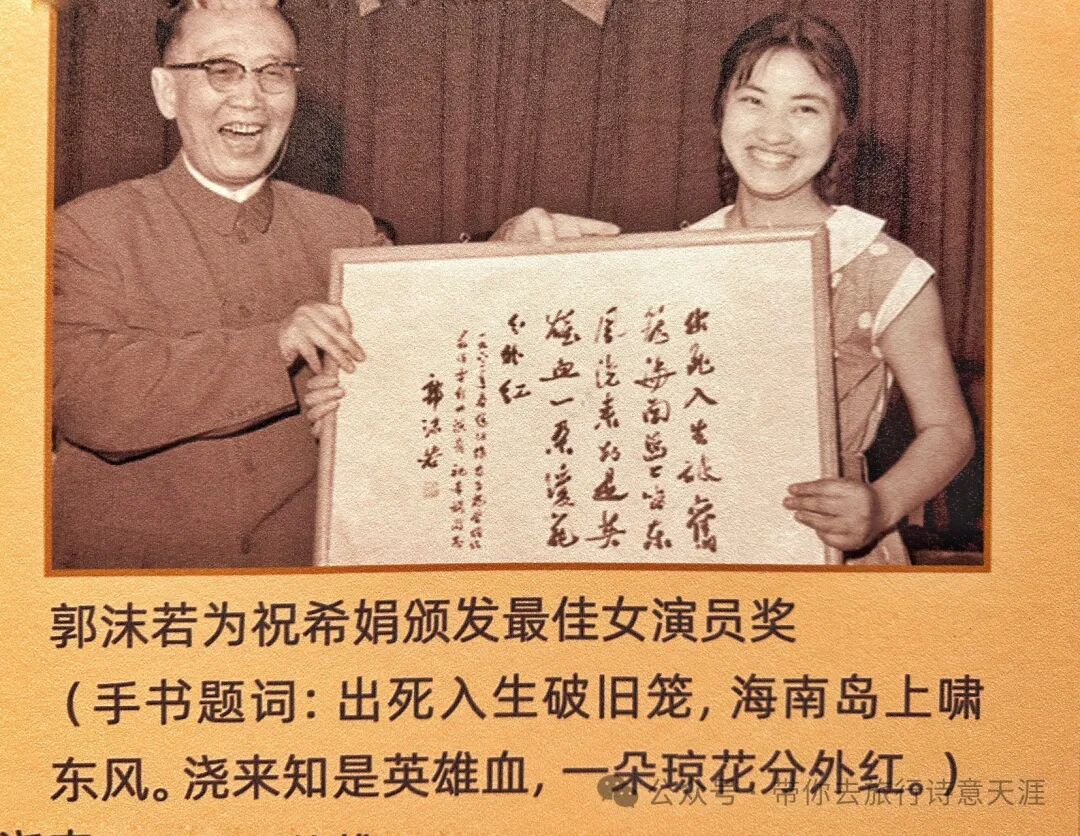 出死入生破舊
笼海南岛上啸东
風浇来知是英
雄血一朵瓊花
分外红
郭沫若
郭沫若为祝希娟颁发最佳女演员奖
(手书题词: 出死入生破旧笼, 海南岛上啸
东风。浇来知是英雄血, 一朵琼花分外红。)
公众号 带你去旅行诗意天涯